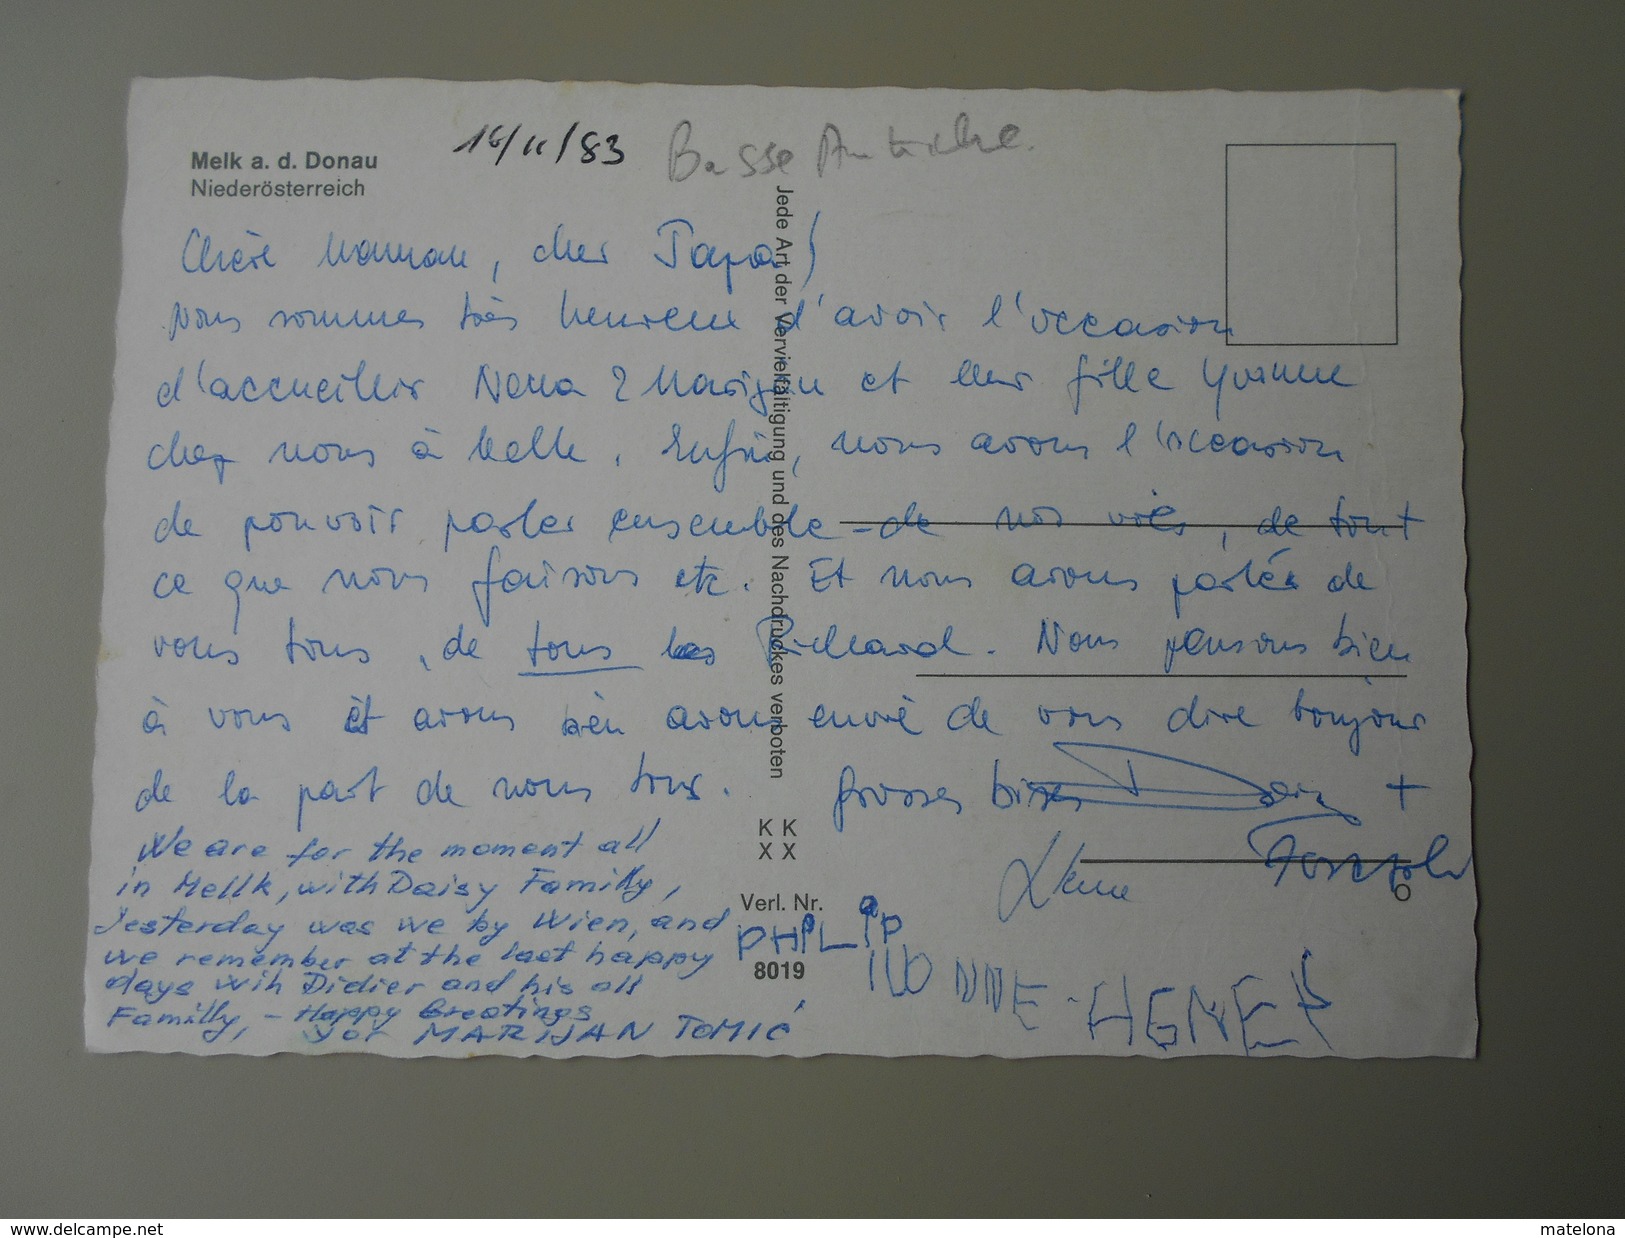 Melk a. d. Donau
Niederösterreich
16/11/83
Basse Autriche.
Chère Maman, cher Papa!
Nous sommes très heureux d'avoir l'occasion
d'accueillir Nena & Marijan et leur fille Yvonne
chez nous à Melk. Enfin, nous avons l'occasion
de pouvoir parler ensemble - de nos vies, de tout
ce que nous faisons etc. Et nous avons parlés de
vous tous, de tous les Richard. Nous pensons bien
à vous et avons bien avons envie de vous dire bonjour
de la part de nous tous. Grosses bises Daisy +
We are for the moment all
in Mellk, with Daisy Familly,
Yesterday was we by Wien, and
we remember at the last happy
days wih Didier and his all
Familly, - Happy Greatings
yor MARIJAN TOMIĆ
Jede Art der Vervielfältigung und des Nachdruckes verboten
K K
X X
Verl. Nr.
8019
PHILIP
IVONNE - AGNES
matelona
www.delcampe.net